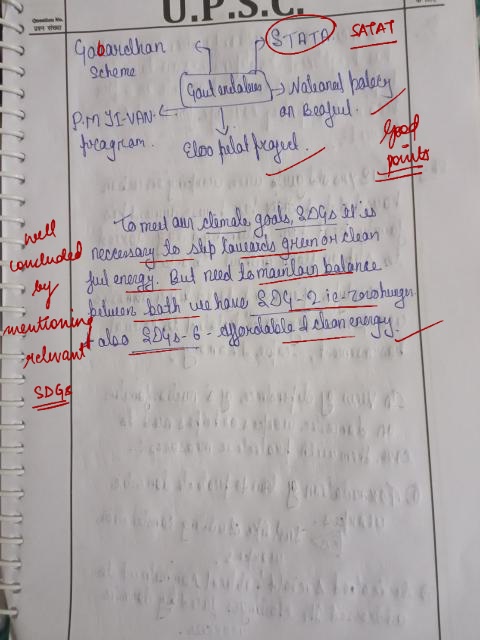 U.P.S.C.
Question No.
प्रश्न संख्या
Gobardhan
Scheme
STATA
SATAT
Govt endabves
National policy
on Biofuel.
P.M JI-VAN
program.
E100 pilot project.
Good
points
To meet our climate goals, SDGs it is
necessary to slip towards green or clean
fuel energy. But need to maintain balance
between both we have SDG-2 ie-zero hunger
also SDGs-6 - affordable & clean energy.
well
concluded
by
mentioning
relevant
SDGs